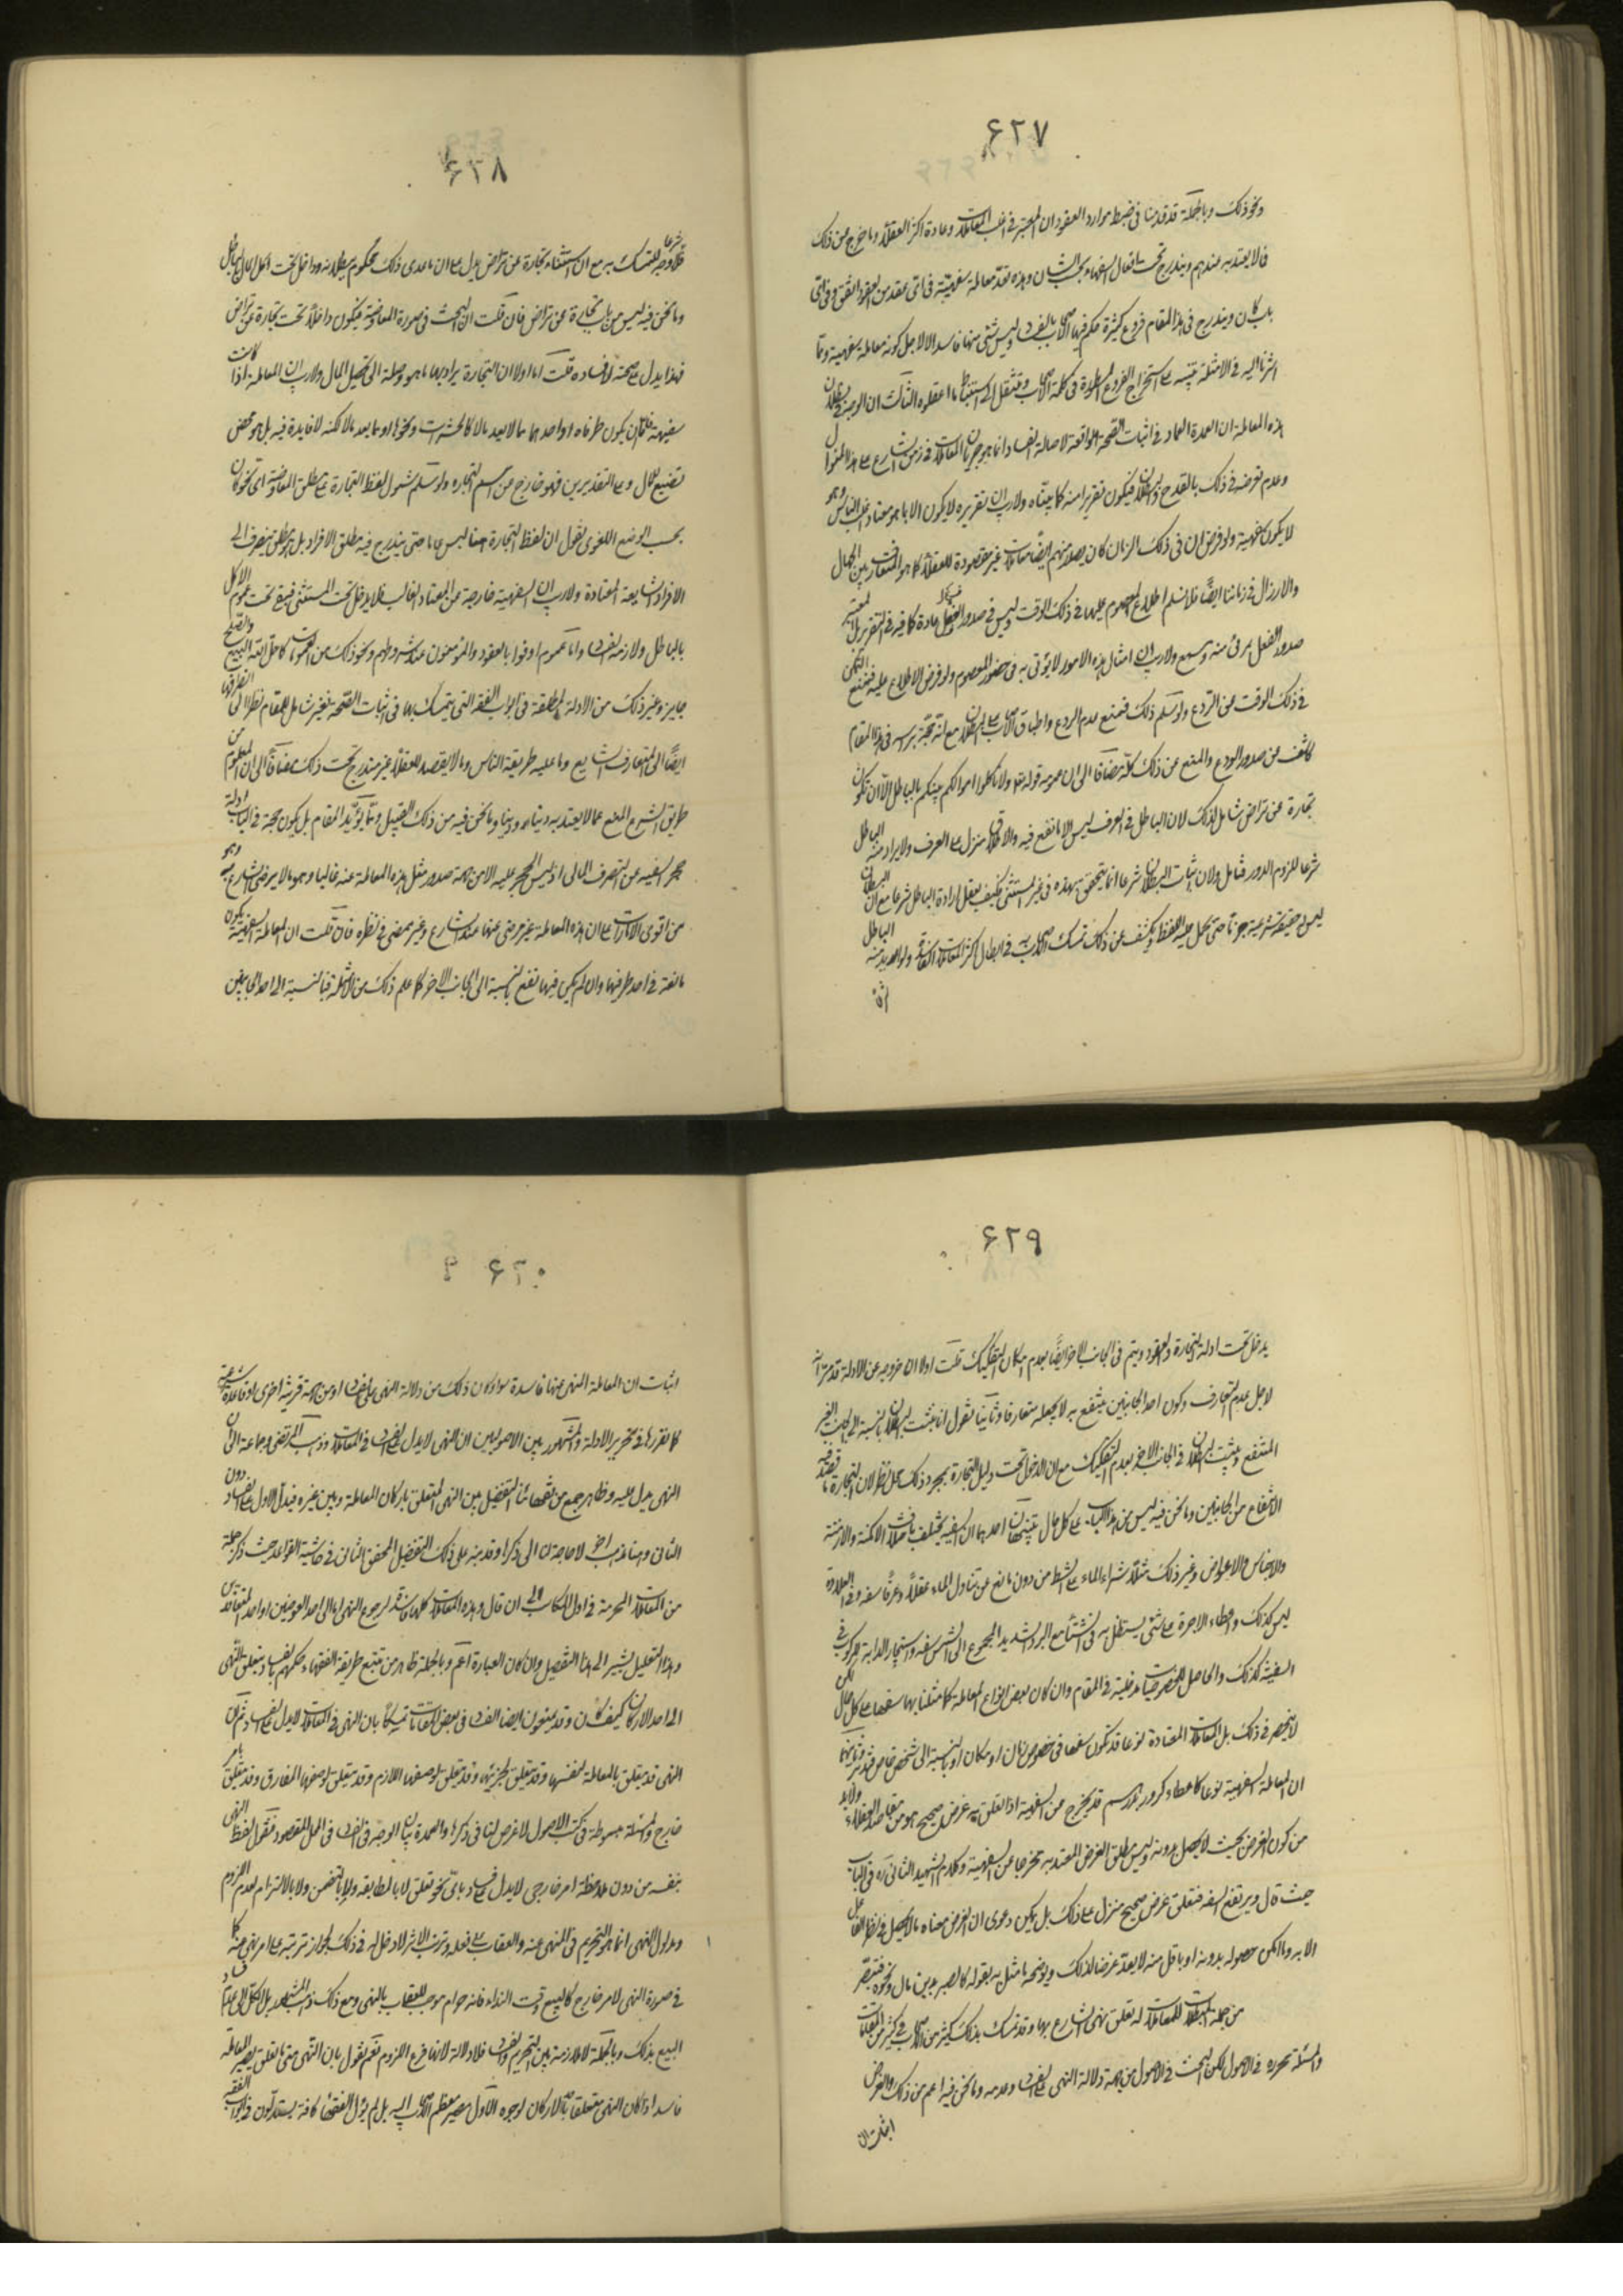 ۶۲۷
ونحو ذلك وبالجملة قد قدمنا في ضبط موارد العقود ان المعتبر في اغلب المعاملات وعادة اكثر العقلاء وما خرج من ذلك
فلا يعتد به عندهم ويندرج تحت افعال السفهاء بحسب الشأن وهذه تعد معاملة سفهيته في اي عقد من العقود اتفق وفي اي
باب كان ويندرج في هذا المقام فروع كثيرة حكم فيها الأصحاب بالفساد وليس شئ منها فاسدا الا لاجل كونه معاملة سفهية وما
اشرنا اليه في الامثلة تنبيه على استخراج الفروع المطوية في كلمة الأصحاب وتنتقل الى استنباط ما اغفلوه الثالث ان الوجه في بطلان
هذه المعاملة ان العمدة العماد في اثبات الصحة الواقعة لاصالة الفساد انما هو جريان المعاملات في زمن الشارع على هذا المنوال
وعدم تعرضه في ذلك بالقدح والبطلان فيكون تقريرا منه كما بيناه ولا ريب ان تقريره لا يكون الا بما هو معتاد اغلب الناس وهو
لا يكون سفهية ولو فرض ان في ذلك الزمان كان يصدر منهم ايضا معاملات غير مقصودة للعقلاء كما هو المتعارف بين الجهال
والارزال في زماننا ايضا فلا نسلم اطلاع المعصوم عليها في ذلك الوقت وليس في صدور الفعل عادة كافية في التقرير بل المعتبر
صدور الفعل بمرئ منه ومسمع ولا ريب ان امثال هذه الامور لا يؤتى به في حضور المعصوم ولو فرض الاطلاع عليه فنمنع التمكن
في ذلك الوقت من الردع ولو سلم ذلك فنمنع عدم الردع واطباق الأصحاب على البطلان مع انه حجة براسه في هذا المقام
كاشف من صدور الردع والمنع عن ذلك كله مضافا الى ان عموم قوله تعالى ولا تأكلوا اموالكم بينكم بالباطل الا ان تكون
تجارة عن تراض شامل لذلك لان الباطل في العرف ليس الا ما نفع فيه والاطلاق منزل على العرف ولا يراد منه الباطل
شرعا للزوم الدور فتامل ولان اثبات البطلان شرعا انما يتحقق بهذه في غير المستثنى فكيف يعقل ارادة الباطل شرعا مع ان البطلان
ليس حقيقة شرعية جزما حتى يحمل عليه اللفظ ويكشف عن ذلك تمسك الأصحاب به في ابطال اكثر المعاملات الفاسدة ولو اريد منه الباطل
شرعا
۶۲۸
شرعا فلا وجه للتمسك به مع ان استثناء تجارة عن تراض يدل على ان ما عدى ذلك محكوم ببطلانه وداخل تحت اكل المال بالباطل
وما نحن فيه ليس من باب تجارة عن تراض فان قلت ان البحث في صورة المعاوضة فيكون داخلا تحت تجارة عن تراض
فهذا يدل على صحته لا فساده قلت اما اولا ان التجارة يراد بها ما هو وصلة الى تحصيل المال ولا ريب ان المعاملة اذا كانت
سفيهة فاما ان يكون طرفاه او احدهما مما لا يعد مالا كالحشرات ونحوها او ما يعد مالا لكنه لا فايدة فيه بل هو محض
تضييع مال وعلى التقديرين فهو خارج من اسم التجاره ولو سلم شمول لفظ التجارة على مطلق المعاوضة اي نحو كان
بحسب الوضع اللغوي نقول ان لفظ التجارة هنا ليس عاما حتى يندرج فيه مطلق الافراد بل هو مطلق ينصرف الى
الافراد الشايعة المعتادة ولا ريب ان السفهية خارجة عن المعتاد الغالب فلا يدخل تحت المستثنى فيبقى تحت عموم الاكل
بالباطل ولازمه الفساد واما عموم اوفوا بالعقود والمؤمنون عند شروطهم ونحو ذلك من العمومات كاحل الله البيع والصلح
جايز وغير ذلك من الادلة المطلقة في ابواب الفقه التي يتمسك بها في اثبات الصحة فغير شامل للمقام نظرا الى انصرافها
ايضا الى المتعارف الشايع وما عليه طريقة الناس وما لا يقصد للعقلاء غير مندرج تحت ذلك مضافا الى ان المعلوم من
طريق الشرع المنع عما لا يعتد به دنياه ودينا وما نحن فيه من ذلك القبيل ومما يؤيد المقام بل يكون حجة في الباب ادلة
حجر السفيه عن التصرف المالي اذ ليس الحجر عليه الا من جهة صدور مثل هذه المعاملة عنه غالبا وهو مما لا يرضى الشارع به وهو
من اقوى الامارات على ان هذه المعاملة غير مرضى عنها عند الشارع وغير ممضى في نظره فان قلت ان المعاملة السفهية يكون
نافعة في احد طرفيها وان لم يكن فيها نفع بالنسبة الى الجانب الاخر كما علم ذلك من الامثلة فبالنسبة الى احد الجانبين
۶۲۹
يدخل تحت ادلة التجارة والعقود ويتم في الجانب الاخر ايضا بعدم امكان التفكيك قلت اولا ان خروجه عن الادلة قد مر آنفا
لاجل عدم التعارف وكون احد الجانبين ينتفع به لا يجعله متعارفا وثانيا نقول انا نثبت البطلان بالنسبة الى الجانب الغير
المنتفع ويثبت البطلان في الجانب الاخر بعدم التفكيك مع ان الدخول تحت دليل التجارة بمجرد ذلك محل نظر لان التجارة ما يقصد فيه
الانتفاع من الجانبين وما نحن فيه ليس من هذا الباب على كل حال تنبيهان احدهما ان السفيه يختلف باختلاف الامكنة والازمنة
والاجناس والاعواض وغير ذلك مثلا شراء الماء على الشط من دون مانع عن تناول الماء عقلا وعرفا سفه وفي الفلاة
ليس كذلك واعطاء الاجرة على شئ يستظل به في الشتاء مع البرد الشديد المحوج الى الشمس سفه واستيجار الدابة للركوب في
السفينة كذلك والحاصل للخصوصيات مدخلية في المقام وان كان بعض انواع المعاملة كما مثلنا بها سفها على كل حال لكن
لا ينحصر في ذلك بل المعاملات المعتادة نوعا قد تكون سفها في خصوص زمان او مكان او بالنسبة الى شخص خاص فتدبر وثانيهما
ان المعاملة السفهية نوعا كاعطاء كرور بدرهم قد يخرج من السفهية اذا تعلق به غرض صحيح هو من مقاصد العقلاء ولا بد
من كون الغرض بحيث لا يحصل بدونه وليس مطلق الغرض المعتد به مخرجا عن السفهية وكلام الشهيد الثاني ره في الباب
حيث قال ويرتفع السفه فتعلق غرض صحيح منزل على ذلك بل يمكن دعوى ان الغرض معناه ما لا يحصل في نظر الفاعل
الا به وما امكن حصوله بدونه او باقل منه لا يعد غرضا لذلك ويوضحه ما مثل به بقوله كالصبر بدين مال ونحوه فتبصر
من جملة المبطلات للمعاملات له تعلق نهى الشارع بها وقد تمسك بذلك كثير من الأصحاب في كثير من المقامات
والمسئلة محررة في الاصول لكن البحث في الاصول من جهة دلالة النهى على الفساد وعدمه وما نحن فيه اعم من ذلك والغرض
اثبات ان
۶۳۰
اثبات ان المعاملة المنهى عنها فاسدة سواء كان ذلك من دلالة النهى على الفساد او من جهة قرينة اخرى او قاعدة شرعية
كما نقررها في تحرير الادلة والمشهور بين الاصوليين ان النهى لا يدل على الفساد في المعاملات وذهب المرتضى وجماعة الى ان
النهى يدل عليه وظاهر جمع من فقهائنا التفصيل بين النهى المتعلق باركان المعاملة وبين غيره فيدل الاول على الفساد دون
الثانى وهنا مذاهب اخر لا حاجة لنا الى ذكرها وقد نبه على ذلك التفصيل المحقق الثاني في حاشية القواعد حيث ذكر جملة
من المعاملات المحرمة في اول المكاسب الى ان قال وهذه المعاملات كلها فاسدة لرجوع النهى اما الى احد العوضين او احد المتعاقدين
وهذا التعليل يشير الى هذا التفصيل وان كان العبارة اعم وبالجملة ظاهر من تتبع طريقة الفقهاء حكمهم بالفساد بتعلق النهى
الى احد الاركان كيف كان وقد يمنعون ايضا الفساد في بعض المقامات تمسكا بان النهى في المعاملات لا يدل على الفساد ثم ان
النهى قد يتعلق بالمعاملة لنفسها وقد يتعلق لجزئها وقد يتعلق لوصفها اللازم وقد يتعلق لوصفها المفارق وقد يتعلق بامر
خارج والمسئلة مبسوطة في كتب الاصول لا غرض لنا في ذكرها والعمدة بيان الوجه في الفساد في المحل المقصود فنقول لفظ النهى
بنفسه من دون ملاحظة امر خارجى لا يدل على فساد باى نحو تعلق لا بالمطابقة ولا بالتضمن ولا بالالتزام لعدم اللزوم
ومدلول النهى انما هو التحريم في المنهى عنه والعقاب على فعله وترتب الاثر لا دخل له في ذلك لجواز ترتبه على امر نهى عنه كما
في صورة النهى لامر خارج كالبيع وقت النداء فانه حرام موجب للعقاب بالنهى ومع ذلك ذهب المشهور بل الكل الى عدم فساد
البيع بذلك وبالجملة لا ملازمة بين التحريم والفساد فلا دلالة لانها فرع اللزوم نعم نقول بان النهى متى ما تعلق يصير المعاملة
فاسدا اذا كان النهى متعلقا بالاركان لوجوه الاول مصير معظم الأصحاب اليه بل لم يزل الفقهاء كافة يستدلون في ابواب الفقه